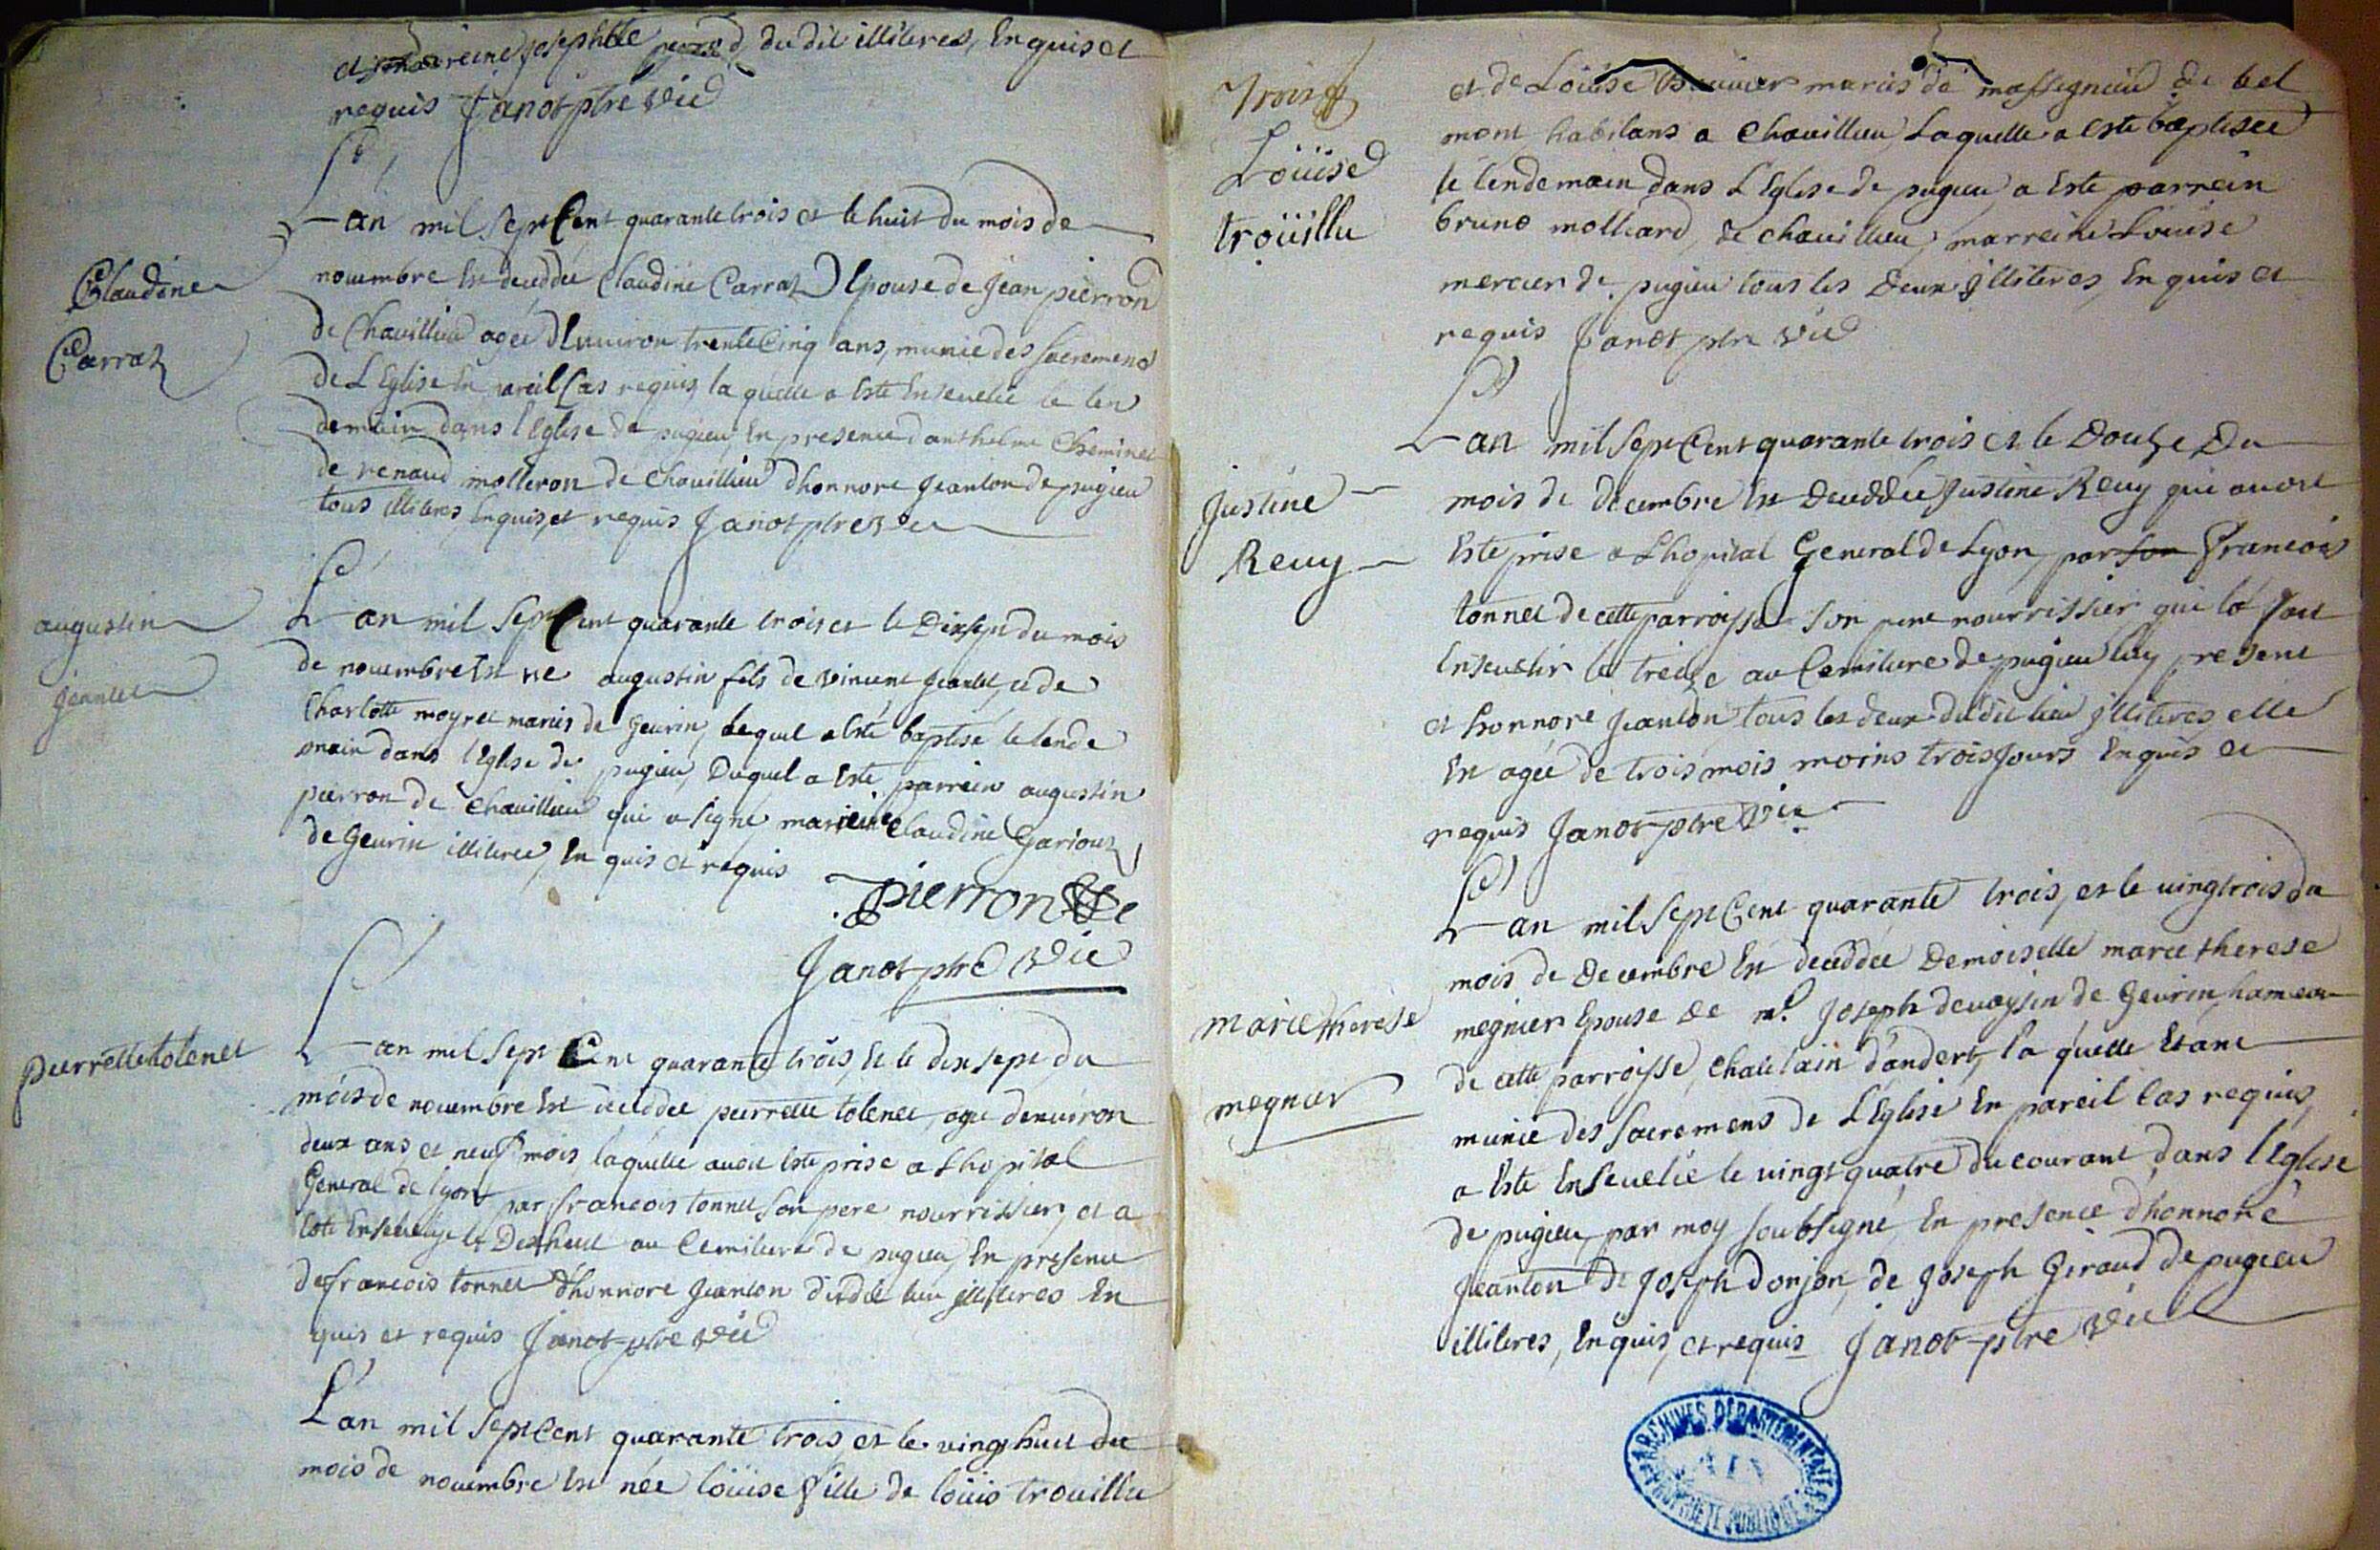 et marreine josephtte du dit illiteres, Enquis et
requis Janot ptre vic
Claudine
Carraz
L'an mil sept Cent quarante trois et le huit du mois de
nouembre Est deceddée Claudine Carraz Epouse de Jean pierron
de Chauillieu agée d'Enuiron trente Cinq ans, munie des sacremens
de L'Eglise En pareil Cas requis, la quelle a Este Enseuelie le len
demain dans l'Eglise de pugieu, En presence d'anthelme Cheminet
de renaud molleron de Chauillieu d'honnoré Jeanton de pugieu
tous illiteres, Enquis, et requis Janot ptre vic
augustin
Jeantet
L'an mil sept Cent quarante trois et le Dixsept du mois
de nouembre Est né augustin fils de vincent Jeantet, et de
Charlotte moyret mariés de Geurin, lequel a Esté baptisé le lende
main dans l'Eglise de pugieu, Duquel a Este parrein augustin
pierron de Chauillieu qui a signé marreine Claudine Garioux
de Geurin illiteree, En quis et requis
pierron
Janot ptre vic
pierrette tolenet
L'an mil sept Cent quarante trois, Et le dix sept du
mois de nouembre Est deceddée pierrette tolenet, agée d'enuiron
deux ans et neuf mois, laquelle auoit Esté prise a Lhopital
General de lyon par francois tonnet son pere nourrissier, et a
Esté Enseuelye le Dixhuit au Cemitiere de pugieu, En presence
de francois tonnet d'honnoré Jeanton dudit lieu illiteres En
quis et requis Janot ptre vic
L'an mil sept Cent quarante trois et le vingt huit du
mois de nouembre Est née loüise fille de loüis troüillu
Troisf
Loüise
troüillu
et de Loüise Bouuier mariés de massignieu de bel
mont habitans a Chauillieu, Laquelle a esté baptisée
le lendemain dans L'Eglise de pugieu, a Este parrein
bruno molliard, de chauillieu, marreine Loüise
mercier de pugieu tous les Deux illiteres, En quis et
requis Janot ptre vic
Justine
Reuy
L'an mil sept Cent quarante trois et le Douze Du
mois de decembre Est Deceddée Justine Reuy qui auoit
Esté prise a Lhopital General de Lyon, par son Francois
tonnet de cette parroisse son pere nourrissier qui la fait
Enseuelir le treize au Cemitiere de pugieu luy present
et honnore Jeanton, tous les deux dudit lieu illiteres, elle
Est agée de trois mois moins trois Jours Enquis et
requis Janot ptre vic
marie therese
megnier
L'an mil sept Cent quarante trois, et le vingtrois du
mois de Decembre Est deceddée Demoiselle marie therese
megnier Epouse de mr. Joseph deuoysin de Geurin, hameau
de cette parroisse, chatelain d'andert, la quelle Etant
munie des sacremens de L'Eglise En pareil Cas requis,
a Esté Enseuelie le vingt quatre du courant dans l'Eglise
de pugieu, par moy soubsigné, En presence d'honnoré
Jeanton de Joseph Donjon, de Joseph Giraud de pugieu
illiteres, Enquis, et requis Janot ptre vic
ARCHIVES DEPARTEMENTALES
AIN
PROPRIETE PUBLIQUE